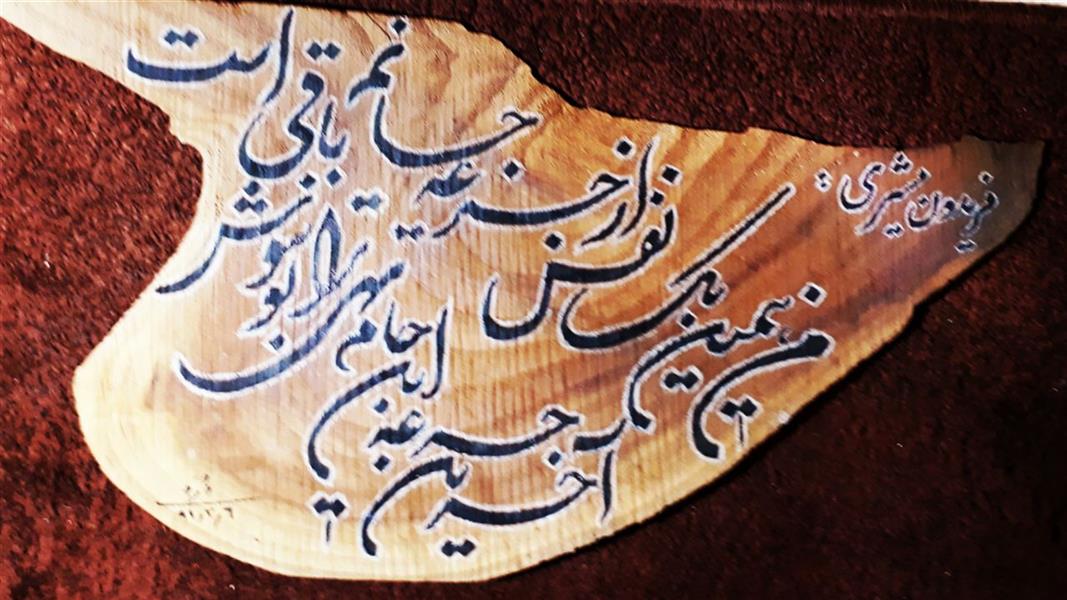 فریدون مشیری :
من همین یک نفس از جرعه جانم باقی است
آخرین جرعه این جام تهی را تو بنوش